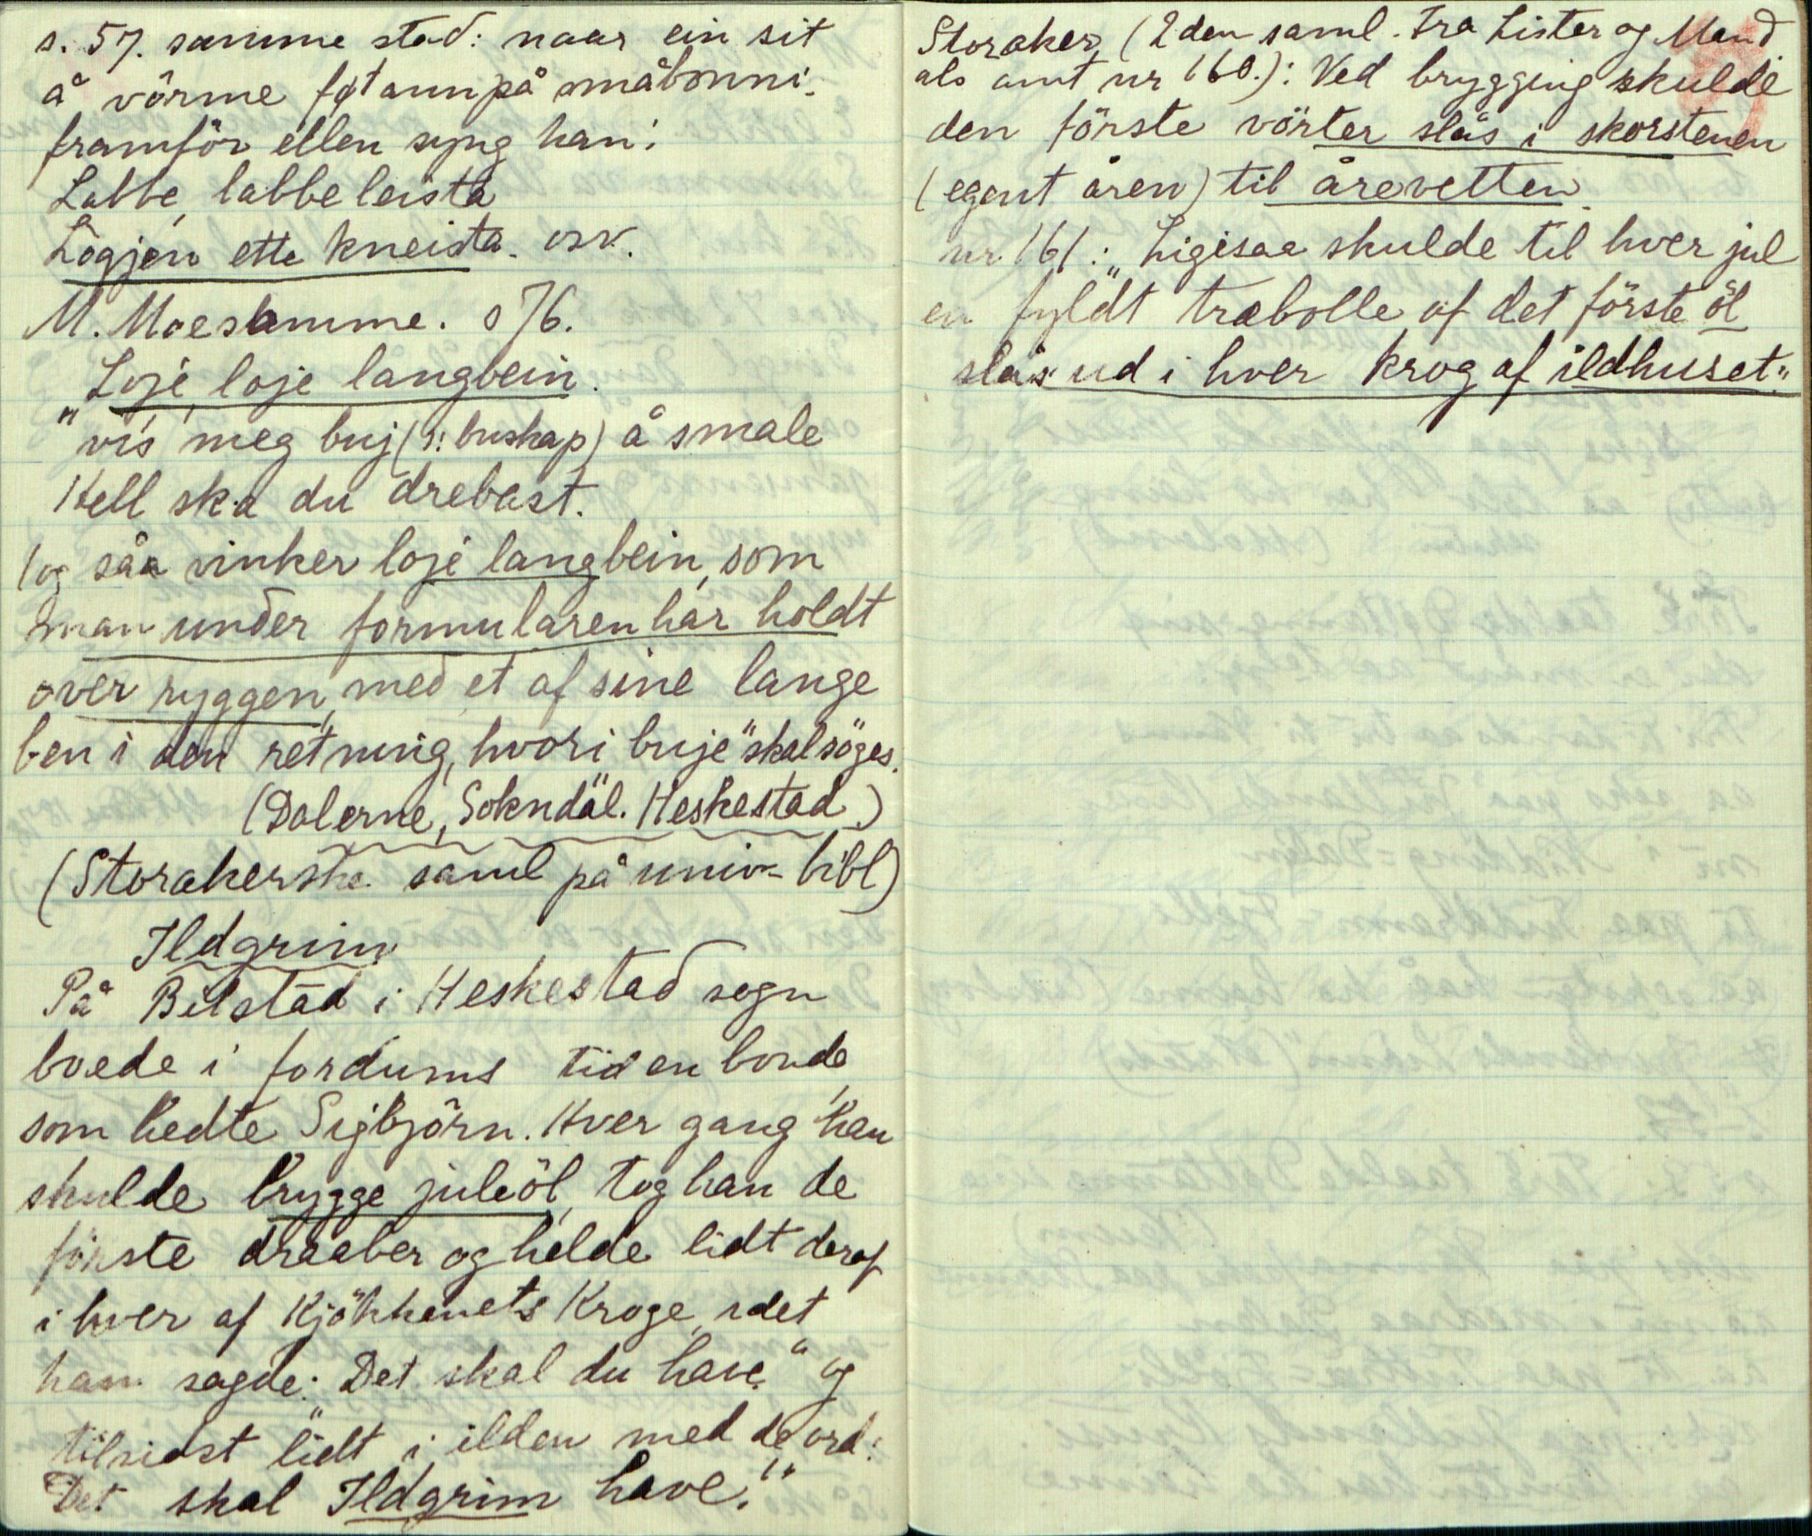 s. 57. samme stad: naar ein sit
å vörme føtann på småbonni
framför ellen syng han:
Labbe, labbe leista
Lögjen ette kneista. osv.
M. Moe samme. s 76.
"Loje, loje langbein.
vis meg buj (ɔ: buskap) å smale
Hell ska du drebast.
(og såa vinker loje langbein, som
man under formularen har holdt
over ryggen, med et af sine lange
ben i den retning, hvori buje "skal söges.
(Dalerne, Sokndal. Heskestad.)
(Storakerske saml på univ-bibl)
Ildgrim
På Bilstad i Heskestad sogn
boede i fordums tid en bonde,
som hedte Sigbjörn. Hver gang han
skulde brygge juleöl, tog han de
förste draaber og helde lidt deraf
i hver af Kjökkenets Kroge, idet
han sagde: "Det skal du have" og
tilsidst lidt i ilden med de ord:
"Det skal Ildgrim have."
Storaker (2den saml. fra Lister og Mand
als amt nr 160.): Ved brygging skulde
den förste vörter slås i skorstenen
(egent åren) til årevetten.
nr. 161: "Ligesaa skulde til hver jul
en fyldt træbolle af det förste öl
slås ud i hver krog af ildhuset."